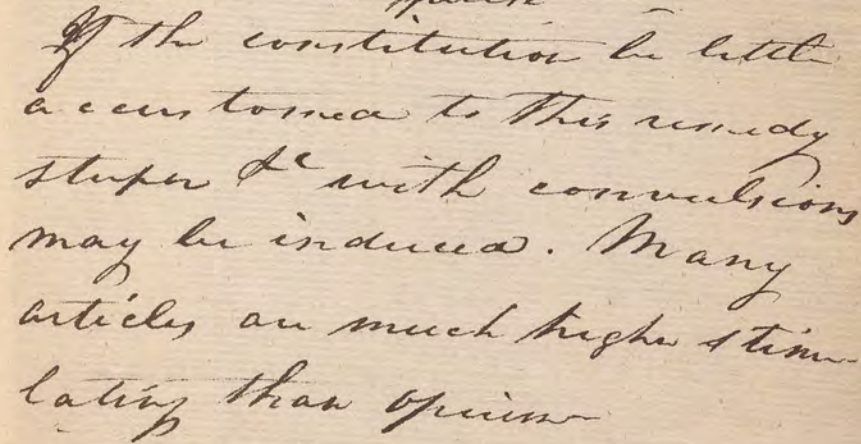 If the constitution be little
accustomed to this remedy
stupor &c with convulsions
may be induced. Many
articles are much higher stimu-
lating than opium